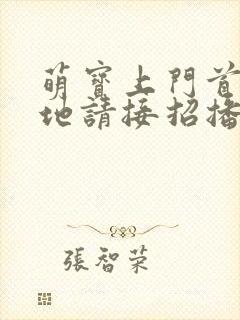 萌寶上門首
地請接招播
張智荣